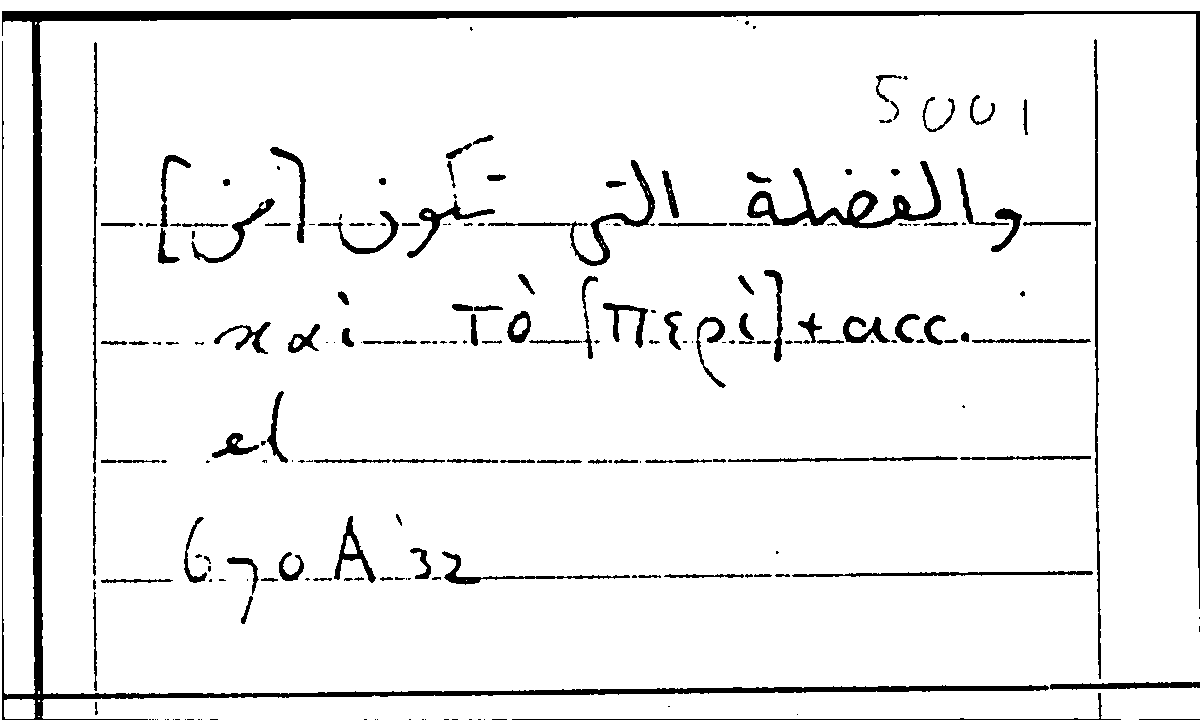 5001
والفضلة التى تكون [فى]
καὶ τὸ [περὶ] + acc.
el
670 A 32